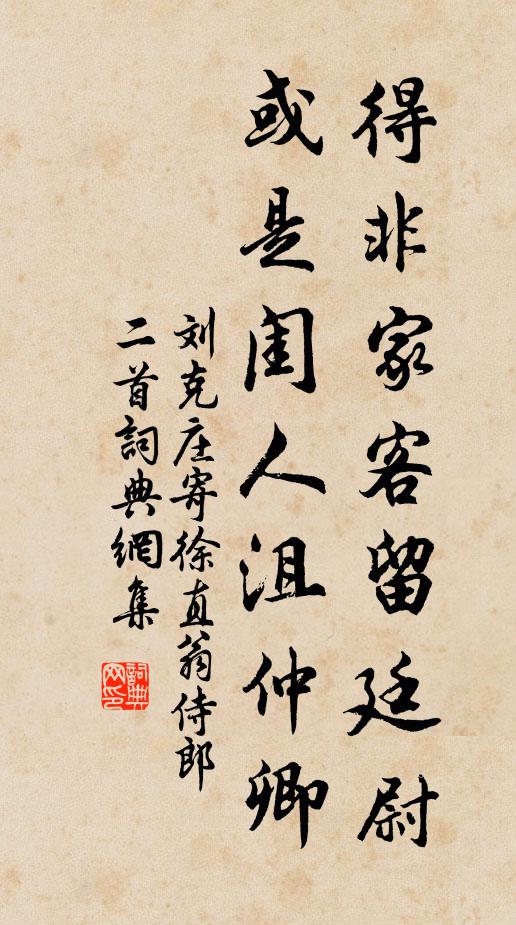 得非家客留廷尉
或是闺人沮仲卿
刘克庄寄徐直翁侍郎
二首詞典網集
詞典网印